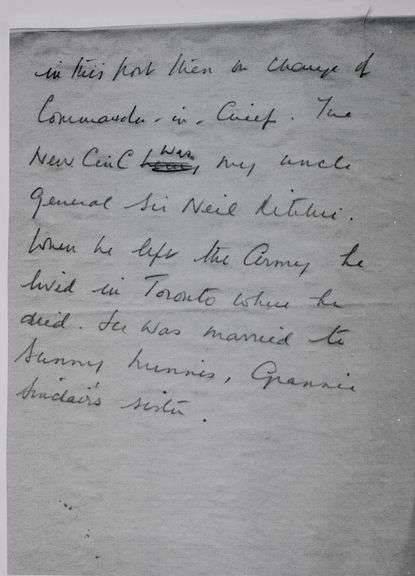 in this post then on change of
Commander-in-Chief. The
New CinC was, my uncle
General Sir Neil Ritchie.
When he left the Army he
lived in Toronto where he
died. He was married to
Sunny Minnis, Grannie
Sinclair's sister.